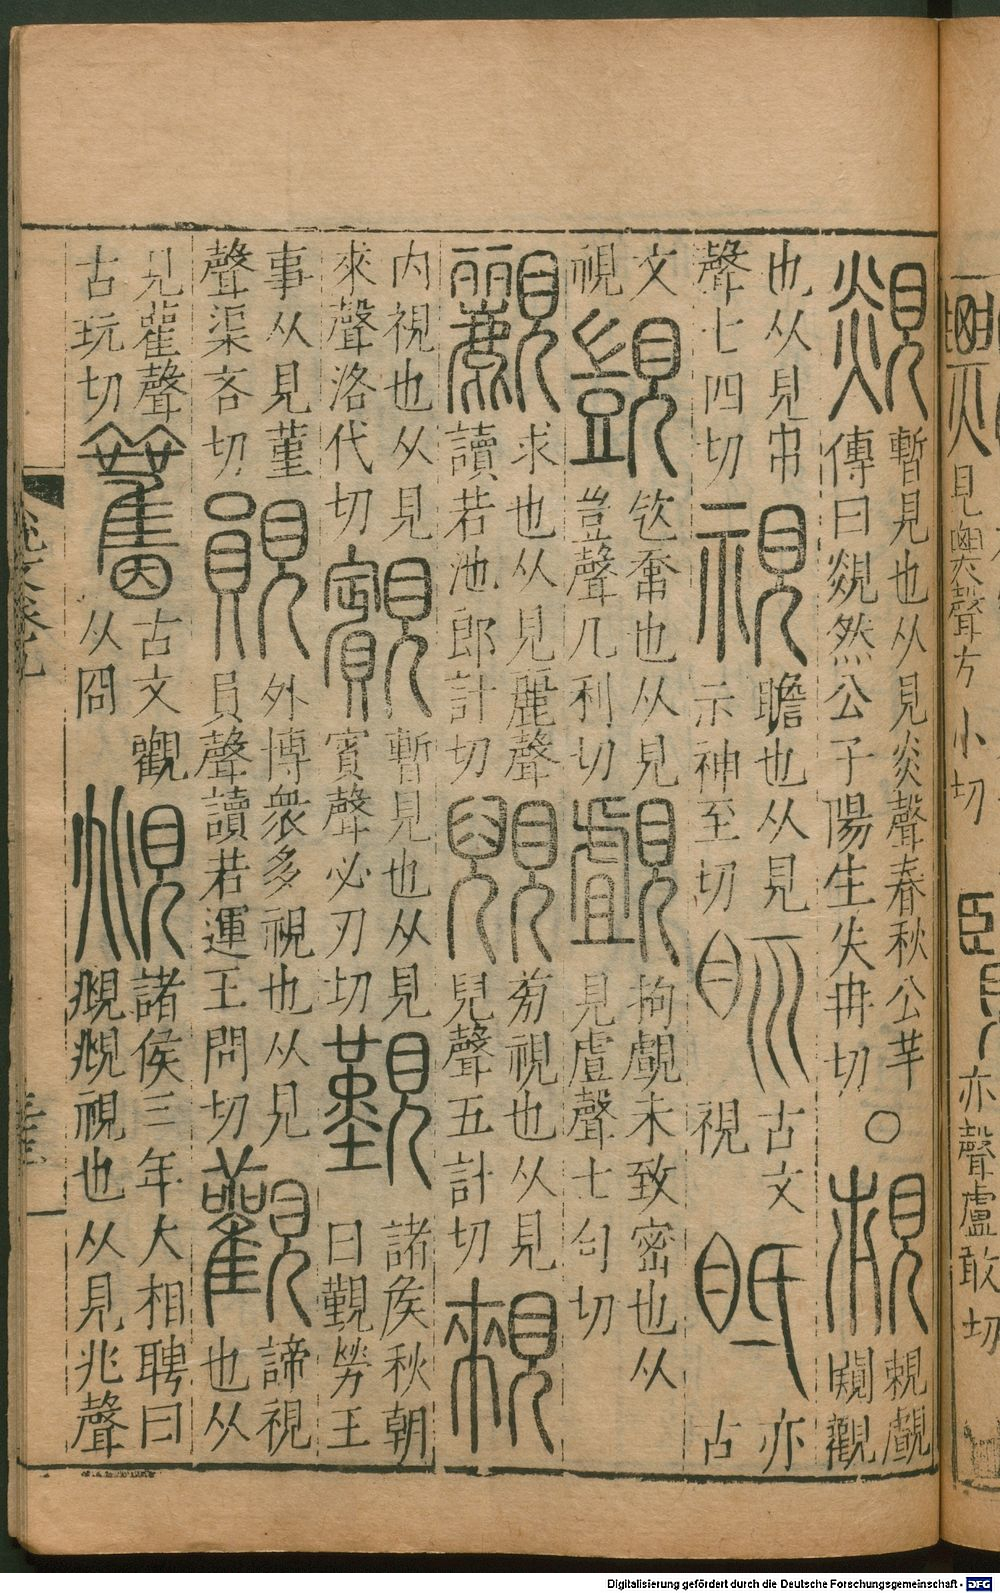 見㶾聲方小切 覽 亦聲盧敢切
覢 暫見也从見炎聲春秋公羊傳曰覢然公子陽生失冉切 ○ 覰闚觀
也从見𠂔聲七四切 視 瞻也从見示神至切 𥄙 古文視 眡 亦古
文視 覬 㰟𡘋也从見豈聲几利切 覰 拘覰未致密也从見虘聲七句切
䚕 求也从見麗聲讀若池郎計切 旁視也从見兒聲五計切 䚅
内視也从見來聲洛代切 䚔 暫見也从見賓聲必刃切 覲 諸侯秋朝曰覲勞王
事从見堇聲渠吝切 䚋 外博衆多視也从見員聲讀若運王問切 觀 諦視也从
見雚聲古玩切 𥍅 古文觀从囧 覜 諸侯三年大相聘曰覜覜視也从見兆聲
Digitalisierung gefördert durch die Deutsche Forschungsgemeinschaft - DFG